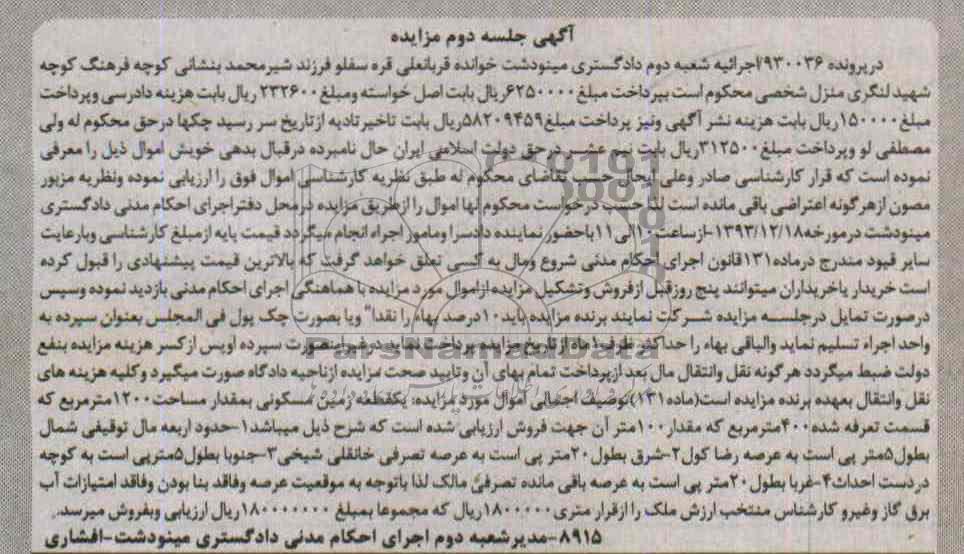 آگهی جلسه دوم مزایده
درپرونده ۹۳۰۰۳۶/اجرائیه شعبه دوم دادگستری مینودشت خوانده قربانعلی قره سفلو فرزند شیرمحمد بنشانی کوچه فرهنگ کوچه
شهید لنگری منزل شخصی محکوم است بپرداخت مبلغ ۶۲۵۰۰۰۰ریال بابت اصل خواسته ومبلغ ۲۳۲۶۰۰ ریال بابت هزینه دادرسی وپرداخت
مبلغ ۱۵۰۰۰۰ریال بابت هزینه نشر آگهی ونیز پرداخت مبلغ۵۸۲۰۹۴۵۹ریال بابت تاخیرتادیه ازتاریخ سر رسید چکها درحق محکوم له ولی
مصطفی لو وپرداخت مبلغ ۳۱۲۵۰۰ریال بابت نیم عشر درحق دولت اسلامی ایران حال نامبرده درقبال بدهی خویش اموال ذیل را معرفی
نموده است که قرار کارشناسی صادر وعلی ایحال حسب تقاضای محکوم له طبق نظریه کارشناسی اموال فوق را ارزیابی نموده ونظریه مزبور
مصون ازهرگونه اعتراضی باقی مانده است لذا حسب درخواست محکوم لها اموال را ازطریق مزایده درمحل دفتراجرای احکام مدنی دادگستری
مینودشت درمورخه ۱۳۹۳/۱۲/۱۸-ازساعت ۱۰الی ۱۱باحضور نماینده دادسرا ومامور اجراء انجام میگردد قیمت پایه ازمبلغ کارشناسی وبارعایت
سایر قیود مندرج درماده ۱۳۱قانون اجرای احکام مدنی شروع ومال به کسی تعلق خواهد گرفت که بالاترین قیمت پیشنهادی را قبول کرده
است خریدار یاخریداران میتوانند پنج روزقبل ازفروش وتشکیل مزایده ازاموال مورد مزایده با هماهنگی اجرای احکام مدنی بازدید نموده وسپس
درصورت تمایل درجلسه مزایده شرکت نمایند برنده مزایده باید ۱۰درصد بهاء را نقدا" ویا بصورت چک پول فی المجلس بعنوان سپرده به
واحد اجراء تسلیم نماید والباقی بهاء را حداکثر ظرف ۱ماه ازتاریخ مزایده پرداخت نماید درغیراینصورت سپرده اوپس ازکسر هزینه مزایده بنفع
دولت ضبط میگردد هرگونه نقل وانتقال مال بعد ازپرداخت تمام بهای آن وتایید صحت مزایده ازناحیه دادگاه صورت میگیرد وکلیه هزینه های
نقل وانتقال بعهده برنده مزایده است(ماده ۱۳۱)توصیف اجمالی اموال مورد مزایده: یکقطعه زمین مسکونی بمقدار مساحت ۱۲۰۰مترمربع که
قسمت تعرفه شده ۴۰۰مترمربع که مقدار ۱۰۰متر آن جهت فروش ارزیابی شده است که شرح ذیل میباشد ۱-حدود اربعه مال توقیفی شمال
بطول ۵متر پی است به عرصه رضا کول ۲-شرق بطول ۲۰متر پی است به عرصه تصرفی خانقلی شیخی ۳-جنوبا بطول ۵مترپی است به کوچه
دردست احداث ۴-غربا بطول ۲۰متر پی است به عرصه باقی مانده تصرفی مالک لذا باتوجه به موقعیت عرصه وفاقد بنا بودن وفاقد امتیازات آب
برق گاز وغیرو کارشناس منتخب ارزش ملک را ازقرار متری ۱۸۰۰۰۰۰ریال که مجموعا بمبلغ ۱۸۰۰۰۰۰۰۰ریال ارزیابی وبفروش میرسد.
۸۹۱۵-مدیرشعبه دوم اجرای احکام مدنی دادگستری مینودشت-افشاری
ParsNamadData